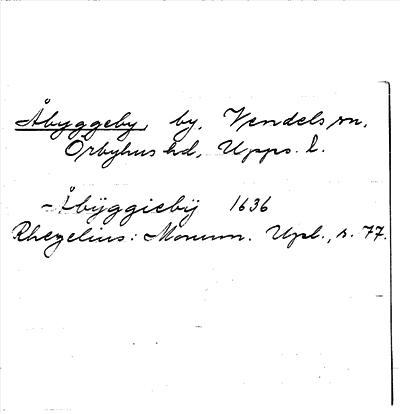 Åbyggeby, by, Vendels sn,
Örbyhus hd, Upps. l.
Åbÿggiebÿ 1636
Rhezelius: Monum. Upl., s. 77.